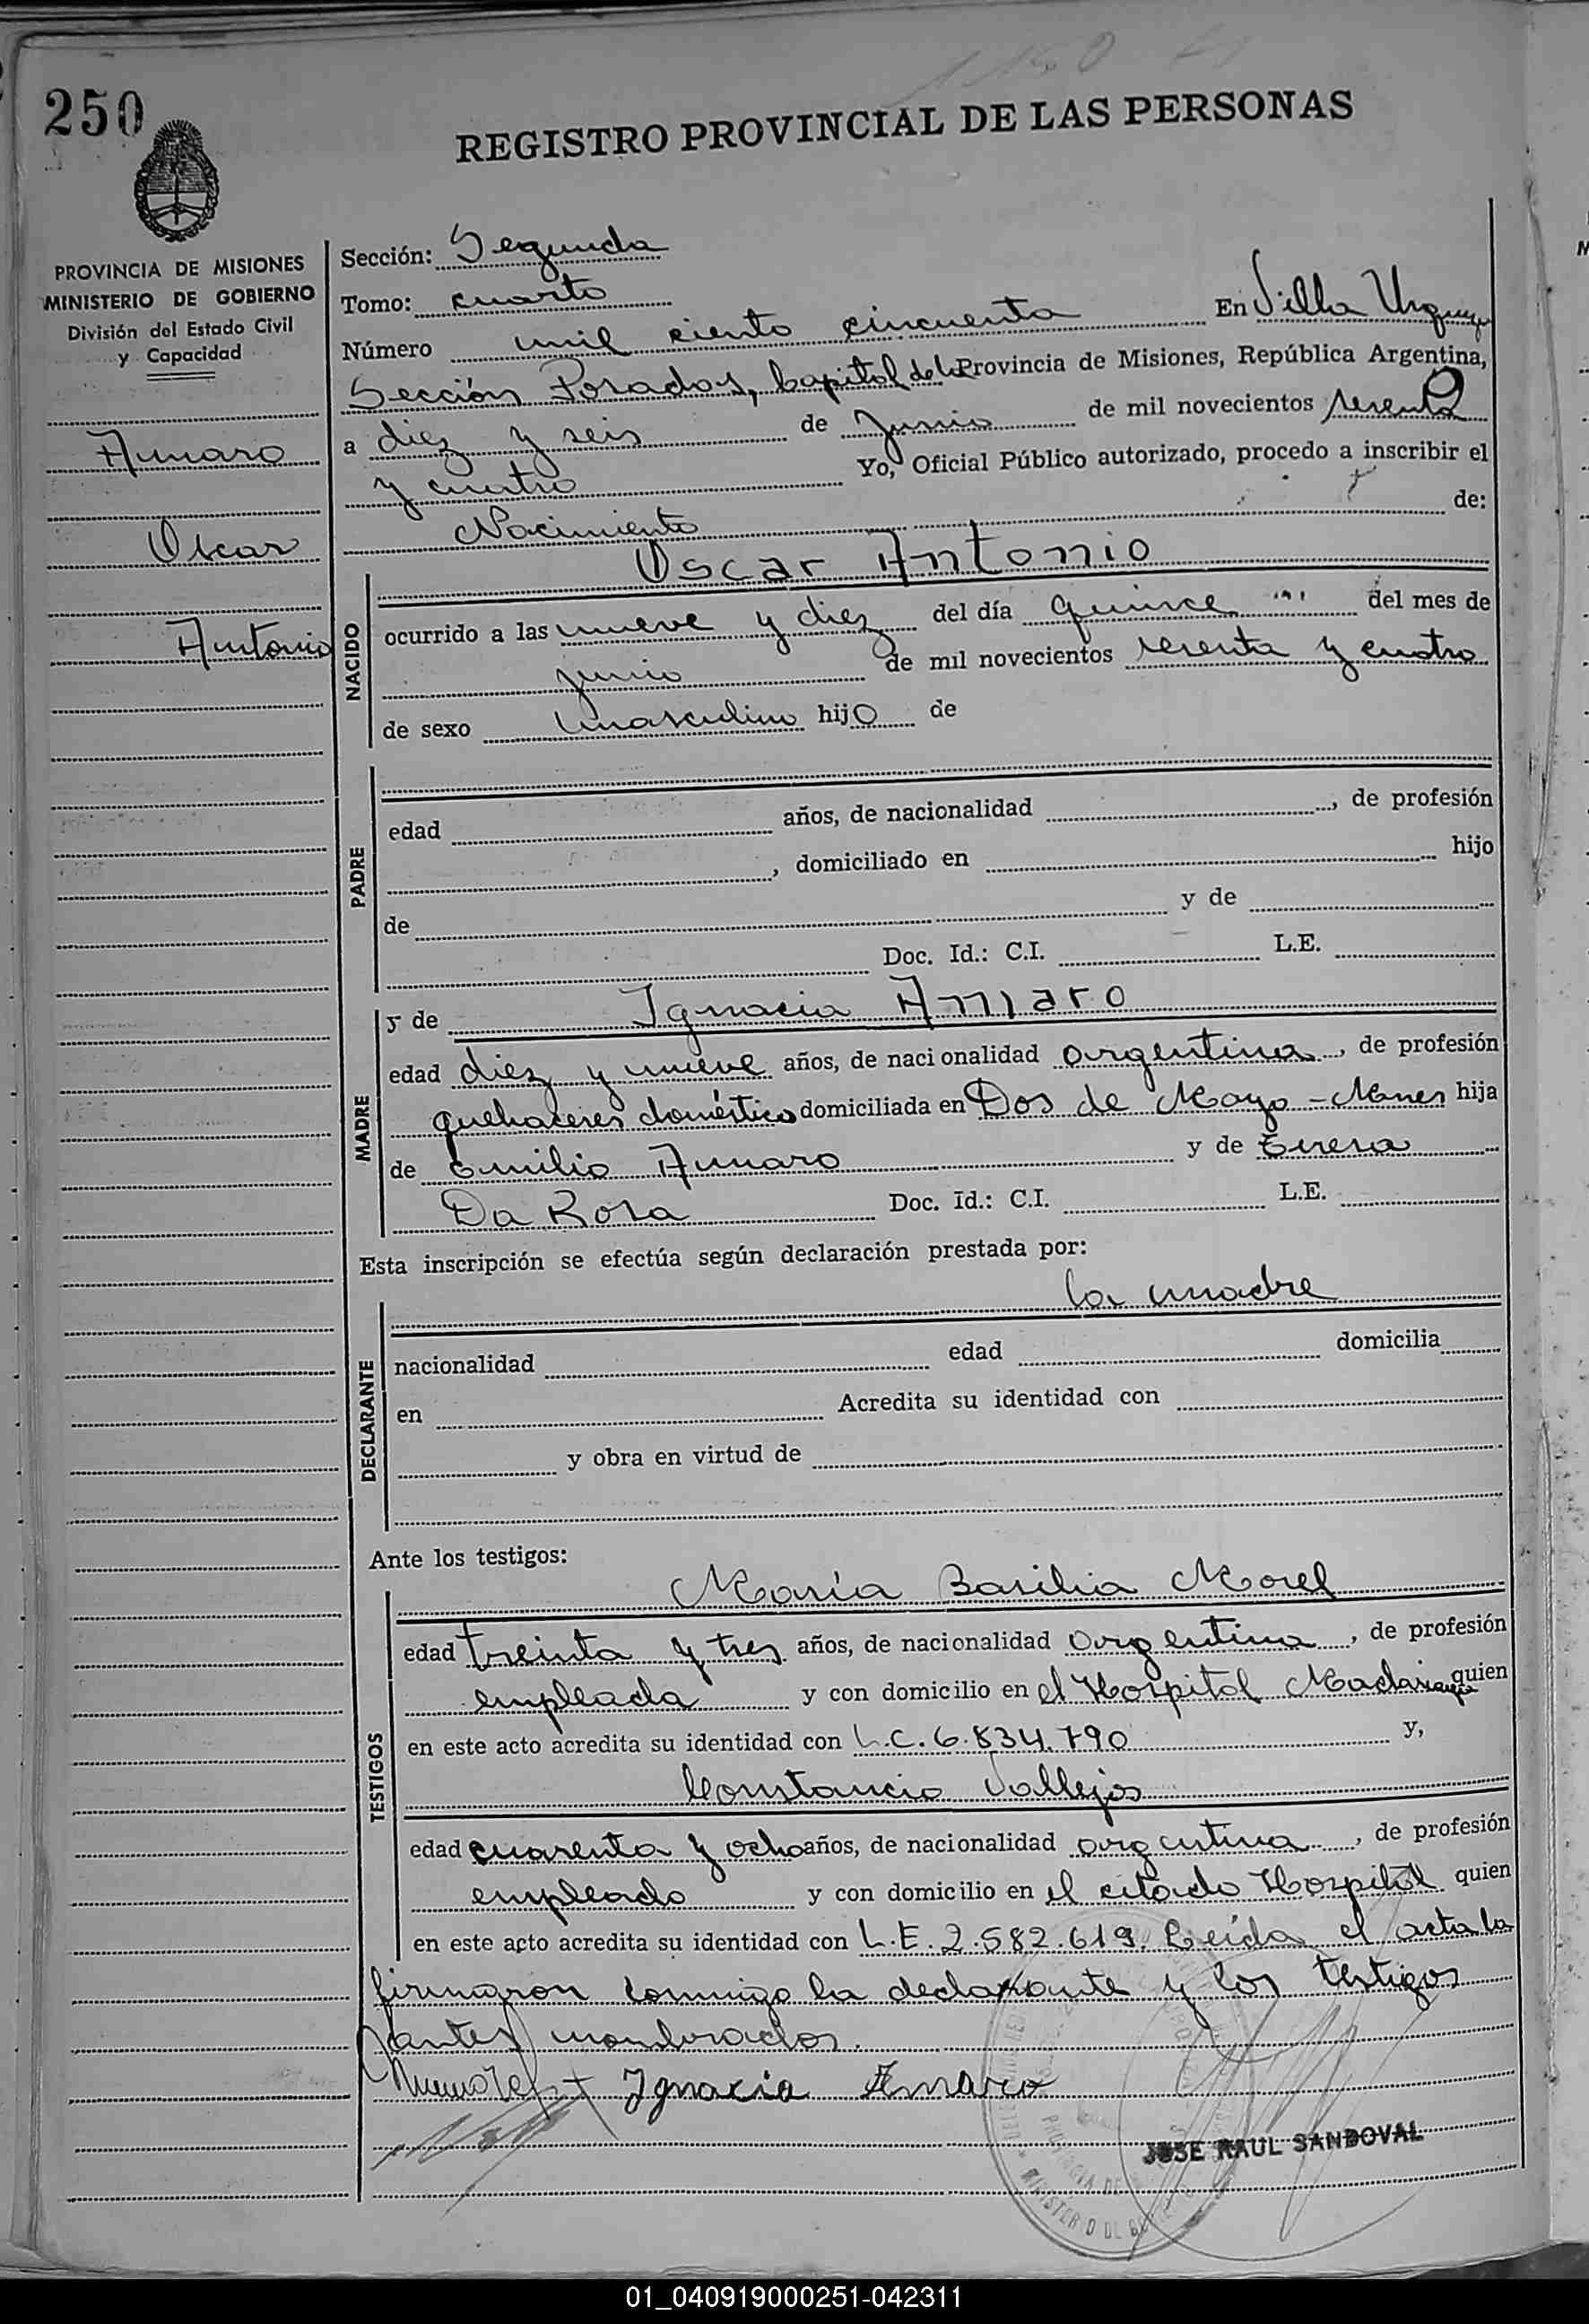 250
REGISTRO PROVINCIAL DE LAS PERSONAS
PROVINCIA DE MISIONES
MINISTERIO DE GOBIERNO
División del Estado Civil
y Capacidad
Amaro
Oscar
Antonio
Sección: Segunda
Tomo: cuarto
Número mil ciento cincuenta En Villa Urquiza
Sección Posadas, Capital de la Provincia de Misiones, República Argentina,
a diez y seis de Junio de mil novecientos sesenta
y cuatro Yo, Oficial Público autorizado, procedo a inscribir el
Nacimiento de:
NACIDO
Oscar Antonio
ocurrido a las nueve y diez del día quince del mes de
junio de mil novecientos sesenta y cuatro
de sexo masculino hijo de
PADRE
edad años, de nacionalidad , de profesión
, domiciliado en hijo
de y de
Doc. Id.: C.I. L.E.
MADRE
y de Ignacia Amaro
edad diez y nueve años, de nacionalidad argentina, de profesión
quehaceres domésticos domiciliada en Dos de Mayo - Mnes hija
de Emilio Amaro y de Teresa
Da Rosa Doc. Id.: C.I. L.E.
Esta inscripción se efectúa según declaración prestada por:
DECLARANTE
la madre
nacionalidad edad domicilia
en Acredita su identidad con
y obra en virtud de
Ante los testigos:
TESTIGOS
María Basilia Morel
edad treinta y tres años, de nacionalidad argentina, de profesión
empleada y con domicilio en el Hospital Madariaga quien
en este acto acredita su identidad con L.C. 6.834.790 y,
Constancio Vallejos
edad cuarenta y ocho años, de nacionalidad argentina, de profesión
empleado y con domicilio en el citado Hospital quien
en este acto acredita su identidad con L.E. 2.582.619. Leída el acta la
firmaron conmigo la declarante y los testigos
antes nombrados.
Ignacia Amaro
JOSE RAUL SANDOVAL
01_040919000251-042311